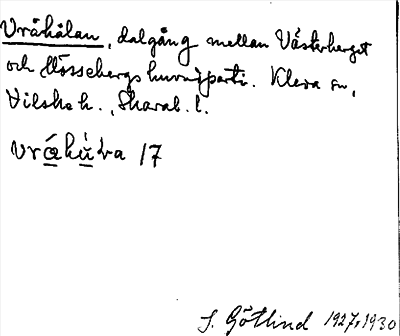 Vråhålan, dalgång mellan Västerberget
och Mössebergs huvudparti. Kleva sn,
Vilske h., Skarab. l.
vråhùva 17
J. Götlind 1927, 1930